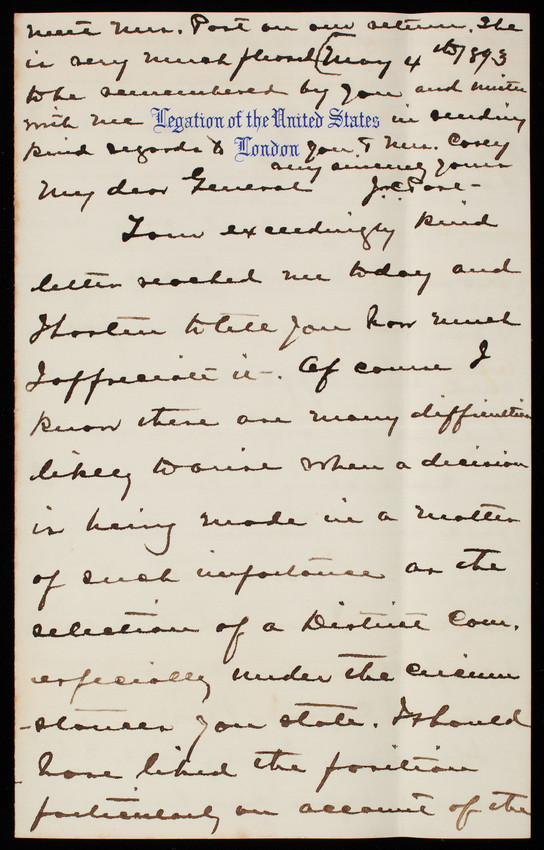 meet Mrs. Post on our return. She
is very much pleased
to be remembered by you and unites
with me in sending
kind regards to you & Mrs. Casey
very sincerely yours
J.C. Post-
May 4th 1893
Legation of the United States
London
My dear General
Your exceedingly kind
letter reached me today and
I hasten to tell you how much
I appreciate it. Of course I
know there are many difficulties
likely to arise when a decision
is being made in a matter
of such importance as the
selection of a District Com.
especially under the circum
-stances you state. I should
have liked the position
particularly on account of the